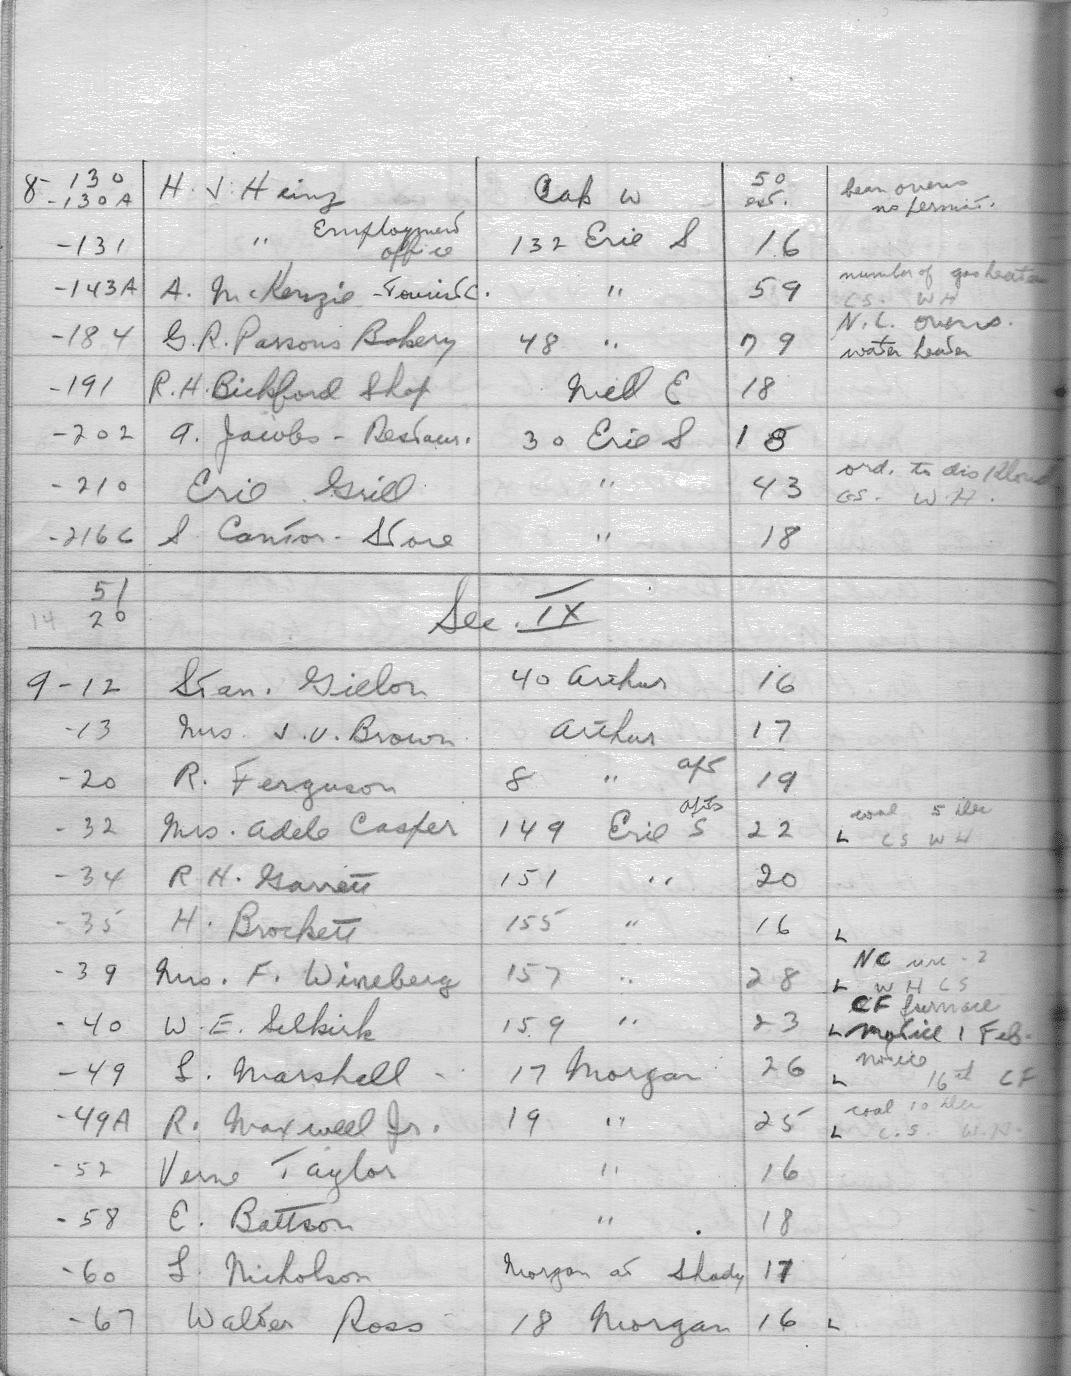 8- 130 H. J. Heinz Oak W 50 bean ovens
-130A est. no permit.
-131 " Employment office 132 Erie S 16
-143A A. McKenzie - Tourist C. " 59 number of gas heaters
CS. WH
-184 G.R. Parsons Bakery 48 " 79 N.C. ovens.
water heater
-191 R.H. Bickford Shop Mill E 18
-202 A. Jacobs - Restaur. 30 Erie S 18
-210 Erie Grill " 43 ord. to dis
CS. W.H.
-216C S. Cantor - Store " 18
51
14 20 Sec. IX
9-12 Stan. Gillon 40 Arthur 16
-13 Mrs. J.V. Brown Arthur 17
-20 R. Ferguson 8 " apt 19
-32 Mrs. Adele Casper 149 Erie S apts 22 coal 5 Dec
L CS WH
-34 R H. Garrett 151 " 20
-35 H. Brockett 155 " 16 L
-39 Mrs. F. Wineberg 157 " 28 NC - 2
L WH CS
-40 W. E. Selkirk 159 " 23 CF furnace
L notice 1 Feb.
-49 L. Marshall - 17 Morgan 26 notice
L 16th CF
-49A R. Maxwell Jr. 19 " 25 coal 10 Dec
L C.S. W.H.
-52 Verne Taylor " 16
-58 E. Battson " 18
-60 L. Nicholson Morgan at Shady 17
-67 Walter Ross 18 Morgan 16 L